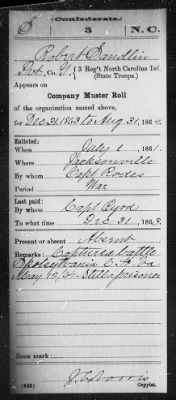 S Confederate.
3 N.C.
Robert Sandlin
Pvt, Co. G, 3 Reg't North Carolina Inf.
(State Troops.)
Appears on
Company Muster Roll
of the organization named above,
for Dec 31, 1863 to Aug 31, 1864.
Enlisted:
When July 1, 1861.
Where Jacksonville
By whom Capt Rodes
Period War
Last paid:
By whom Capt Byrd
To what time Dec 31, 1863.
Present or absent Absent
Remarks: Captured battle
Spotsylvania C. H. Va
May 12/64. Still prisoner
Book mark:
(642) Copyist.